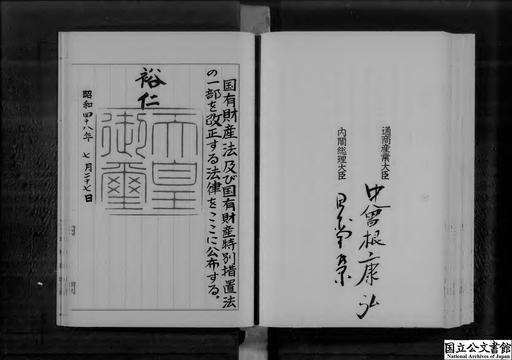 通商産業大臣 中曾根康弘
内閣総理大臣 田中角榮
国有財産法及び国有財産特別措置法
の一部を改正する法律をここに公布する。
裕仁
天皇
御璽
昭和四十八年 七月二十七日
国立公文書館
National Archives of Japan